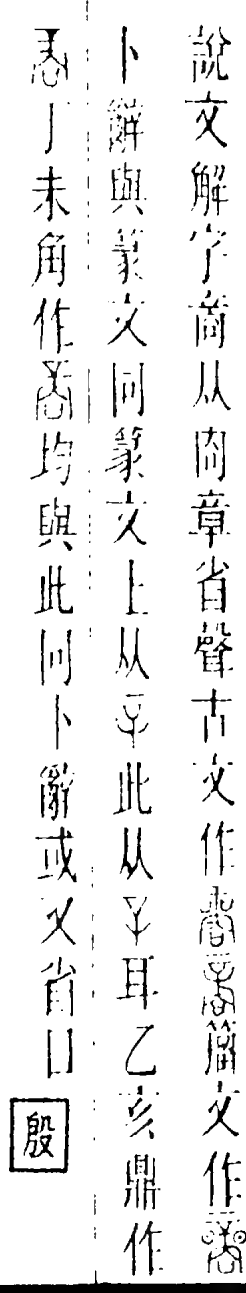 說文解字商从㕯章省聲古文作籒文作
卜辭與篆文同篆文上从䇂此从耳乙亥鼎作
丁未角作均與此同卜辭或又省口殷